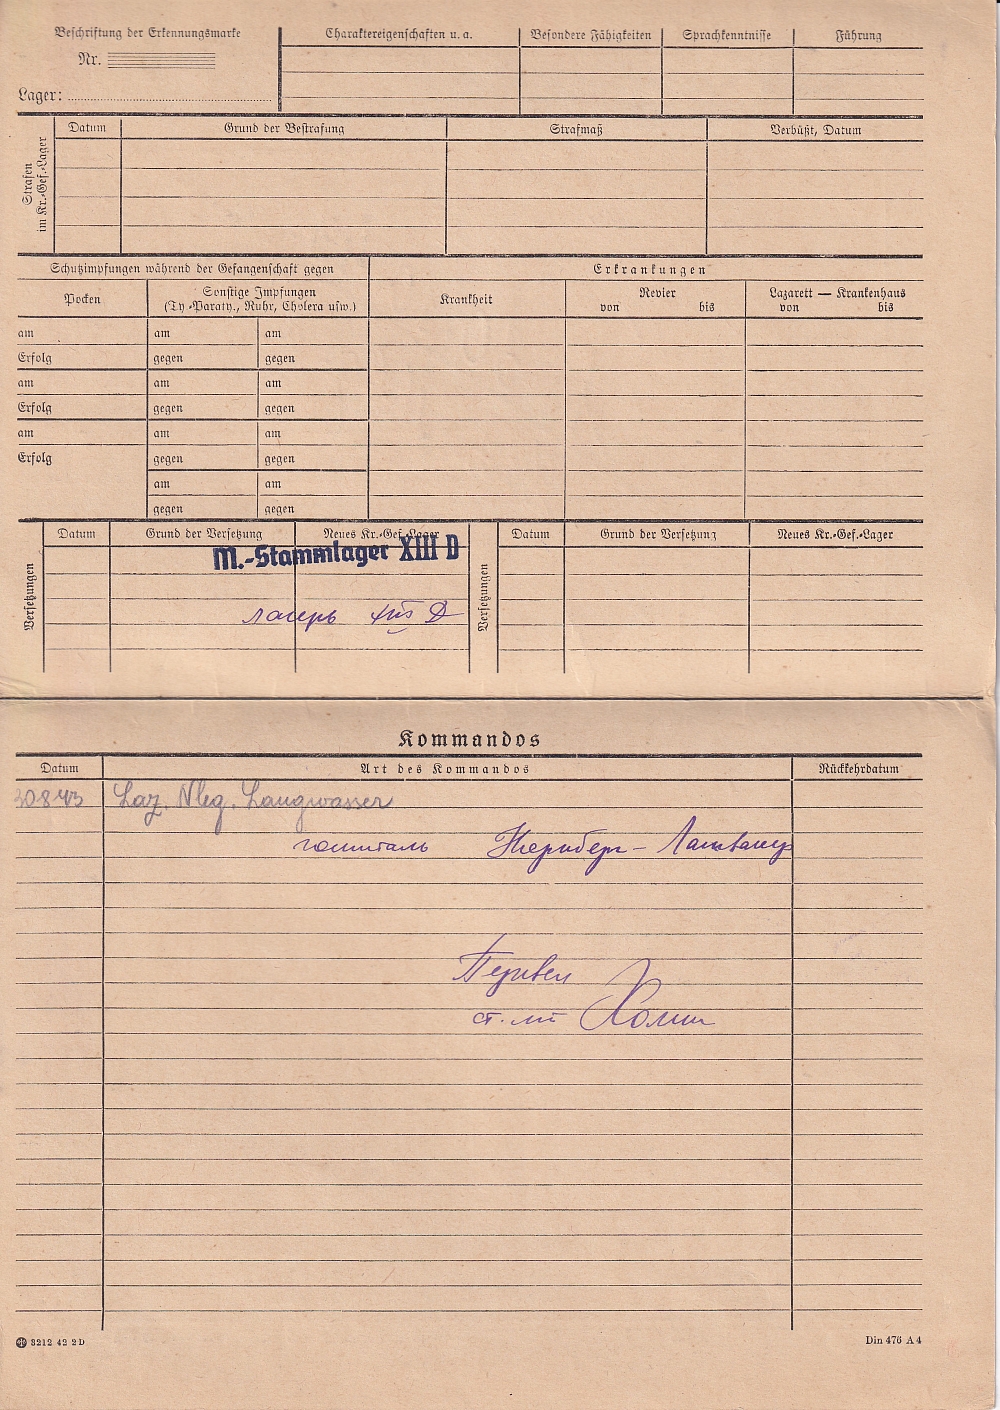 Beschriftung der Erkennungsmarke
Nr.
Lager:
Charaktereigenschaften u. a.
Besondere Fähigkeiten
Sprachkenntnisse
Führung
Strafen im Kr.-Gef.-Lager
Datum
Grund der Bestrafung
Strafmaß
Verbüßt, Datum
Schutzimpfungen während der Gefangenschaft gegen
Erkrankungen
Pocken
Sonstige Impfungen
(Ty.-Paraty., Ruhr, Cholera usw.)
Krankheit
Revier
von bis
Lazarett — Krankenhaus
von bis
am am am
Erfolg gegen gegen
am am am
Erfolg gegen gegen
am am am
Erfolg gegen gegen
am am
gegen gegen
Versetzungen
Datum
Grund der Versetzung
Neues Kr.-Gef.-Lager
M.-Stammlager XIII D
лагерь XIII D
Versetzungen
Datum
Grund der Versetzung
Neues Kr.-Gef.-Lager
Kommandos
Datum
Art des Kommandos
Rückkehrdatum
30 8 43 Laz. Nbg. Langwasser
госпиталь Нюрнберг - Лангвассер
Перевел
ст. л-т
3212 42 2D
Din 476 A 4